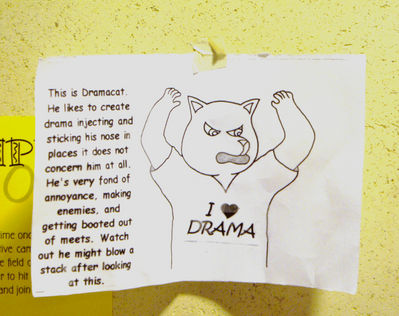 This is Dramacat.
He likes to create
drama injecting and
sticking his nose in
places it does not
concern him at all.
He's very fond of
annoyance, making
enemies, and
getting booted out
of meets. Watch
out he might blow a
stack after looking
at this.
I ♥
DRAMA
P
O
ime onc
tive can
e field o
r to hit
and join